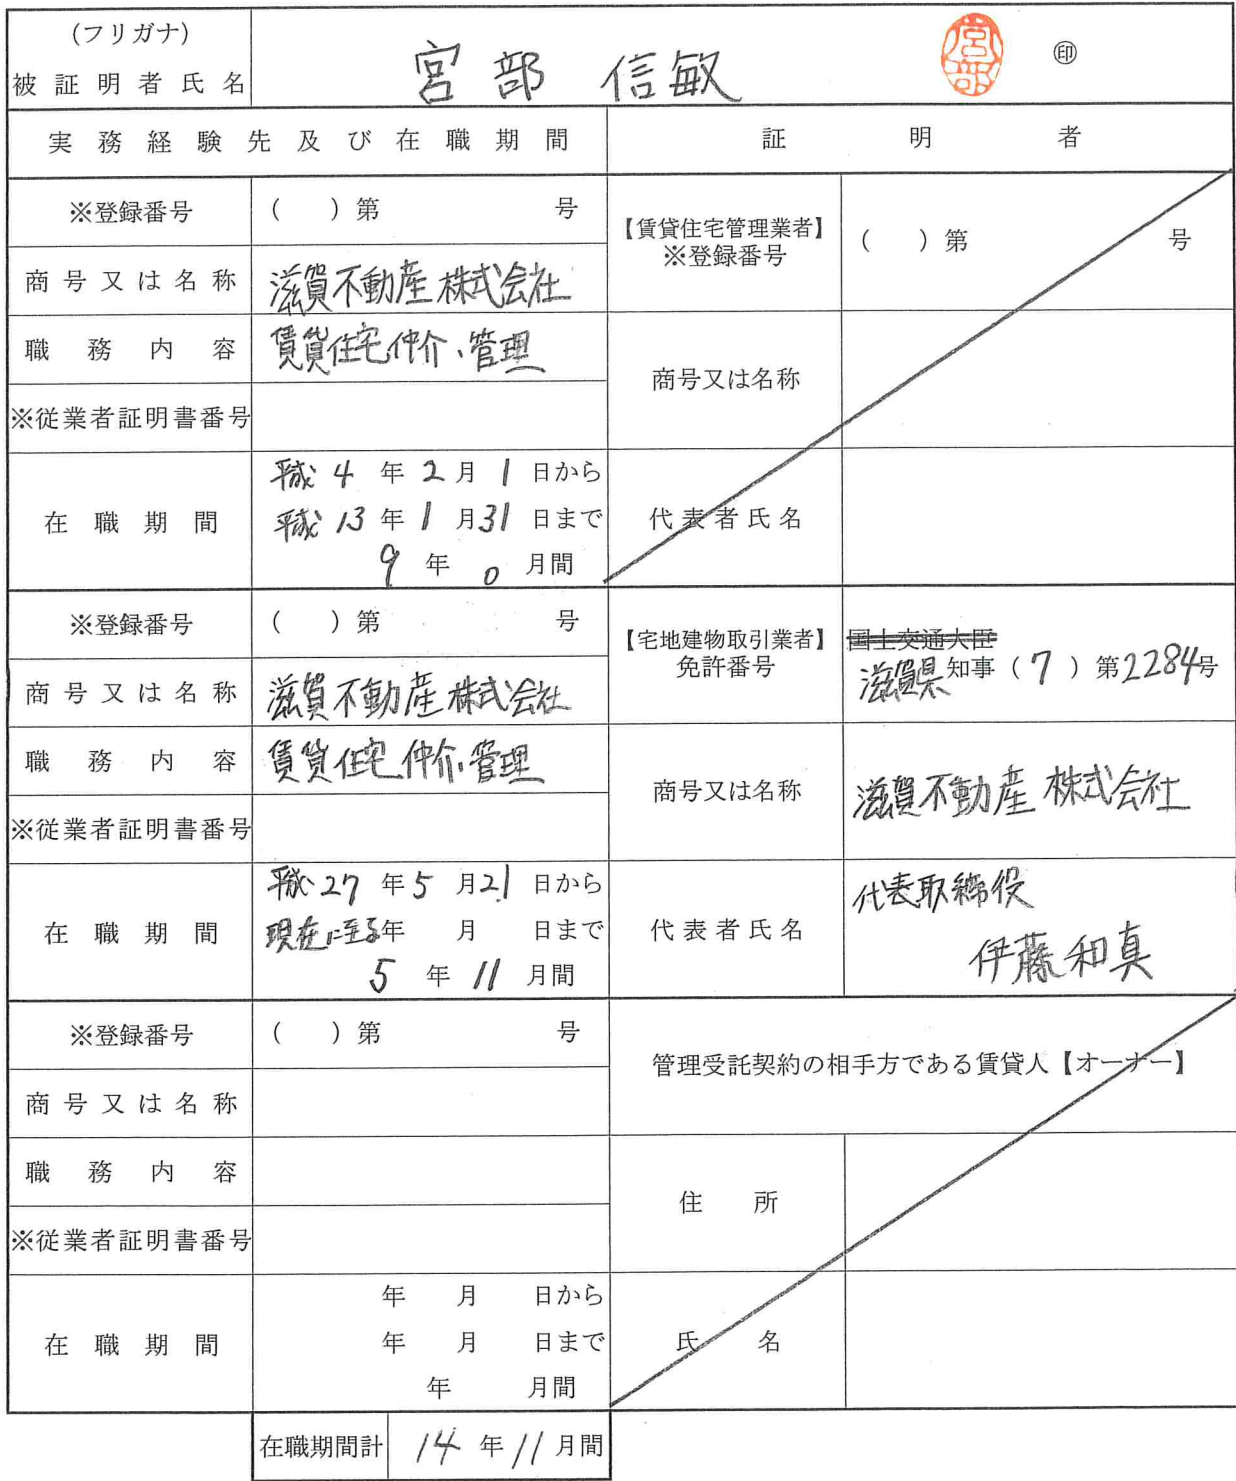 (フリガナ)
被証明者氏名 宮部 信敏 宮部 ㊞
実務経験先及び在職期間 証明者
※登録番号 ( ) 第 号
商号又は名称 滋賀不動産株式会社
職務内容 賃貸住宅仲介、管理
※従業者証明書番号
在職期間 平成 4 年 2 月 1 日から
平成 13 年 1 月 31 日まで
9 年 0 月間
【賃貸住宅管理業者】
※登録番号 ( ) 第 号
商号又は名称
代表者氏名
※登録番号 ( ) 第 号
商号又は名称 滋賀不動産株式会社
職務内容 賃貸住宅仲介、管理
※従業者証明書番号
在職期間 平成 27 年 5 月 21 日から
現在に至る年 月 日まで
5 年 11 月間
【宅地建物取引業者】 国土交通大臣
免許番号 滋賀県 知事 ( 7 ) 第2284号
商号又は名称 滋賀不動産 株式会社
代表者氏名 代表取締役
伊藤和真
※登録番号 ( ) 第 号
商号又は名称
職務内容
※従業者証明書番号
在職期間 年 月 日から
年 月 日まで
年 月間
管理受託契約の相手方である賃貸人【オーナー】
住所
氏名
在職期間計 14 年 11 月間